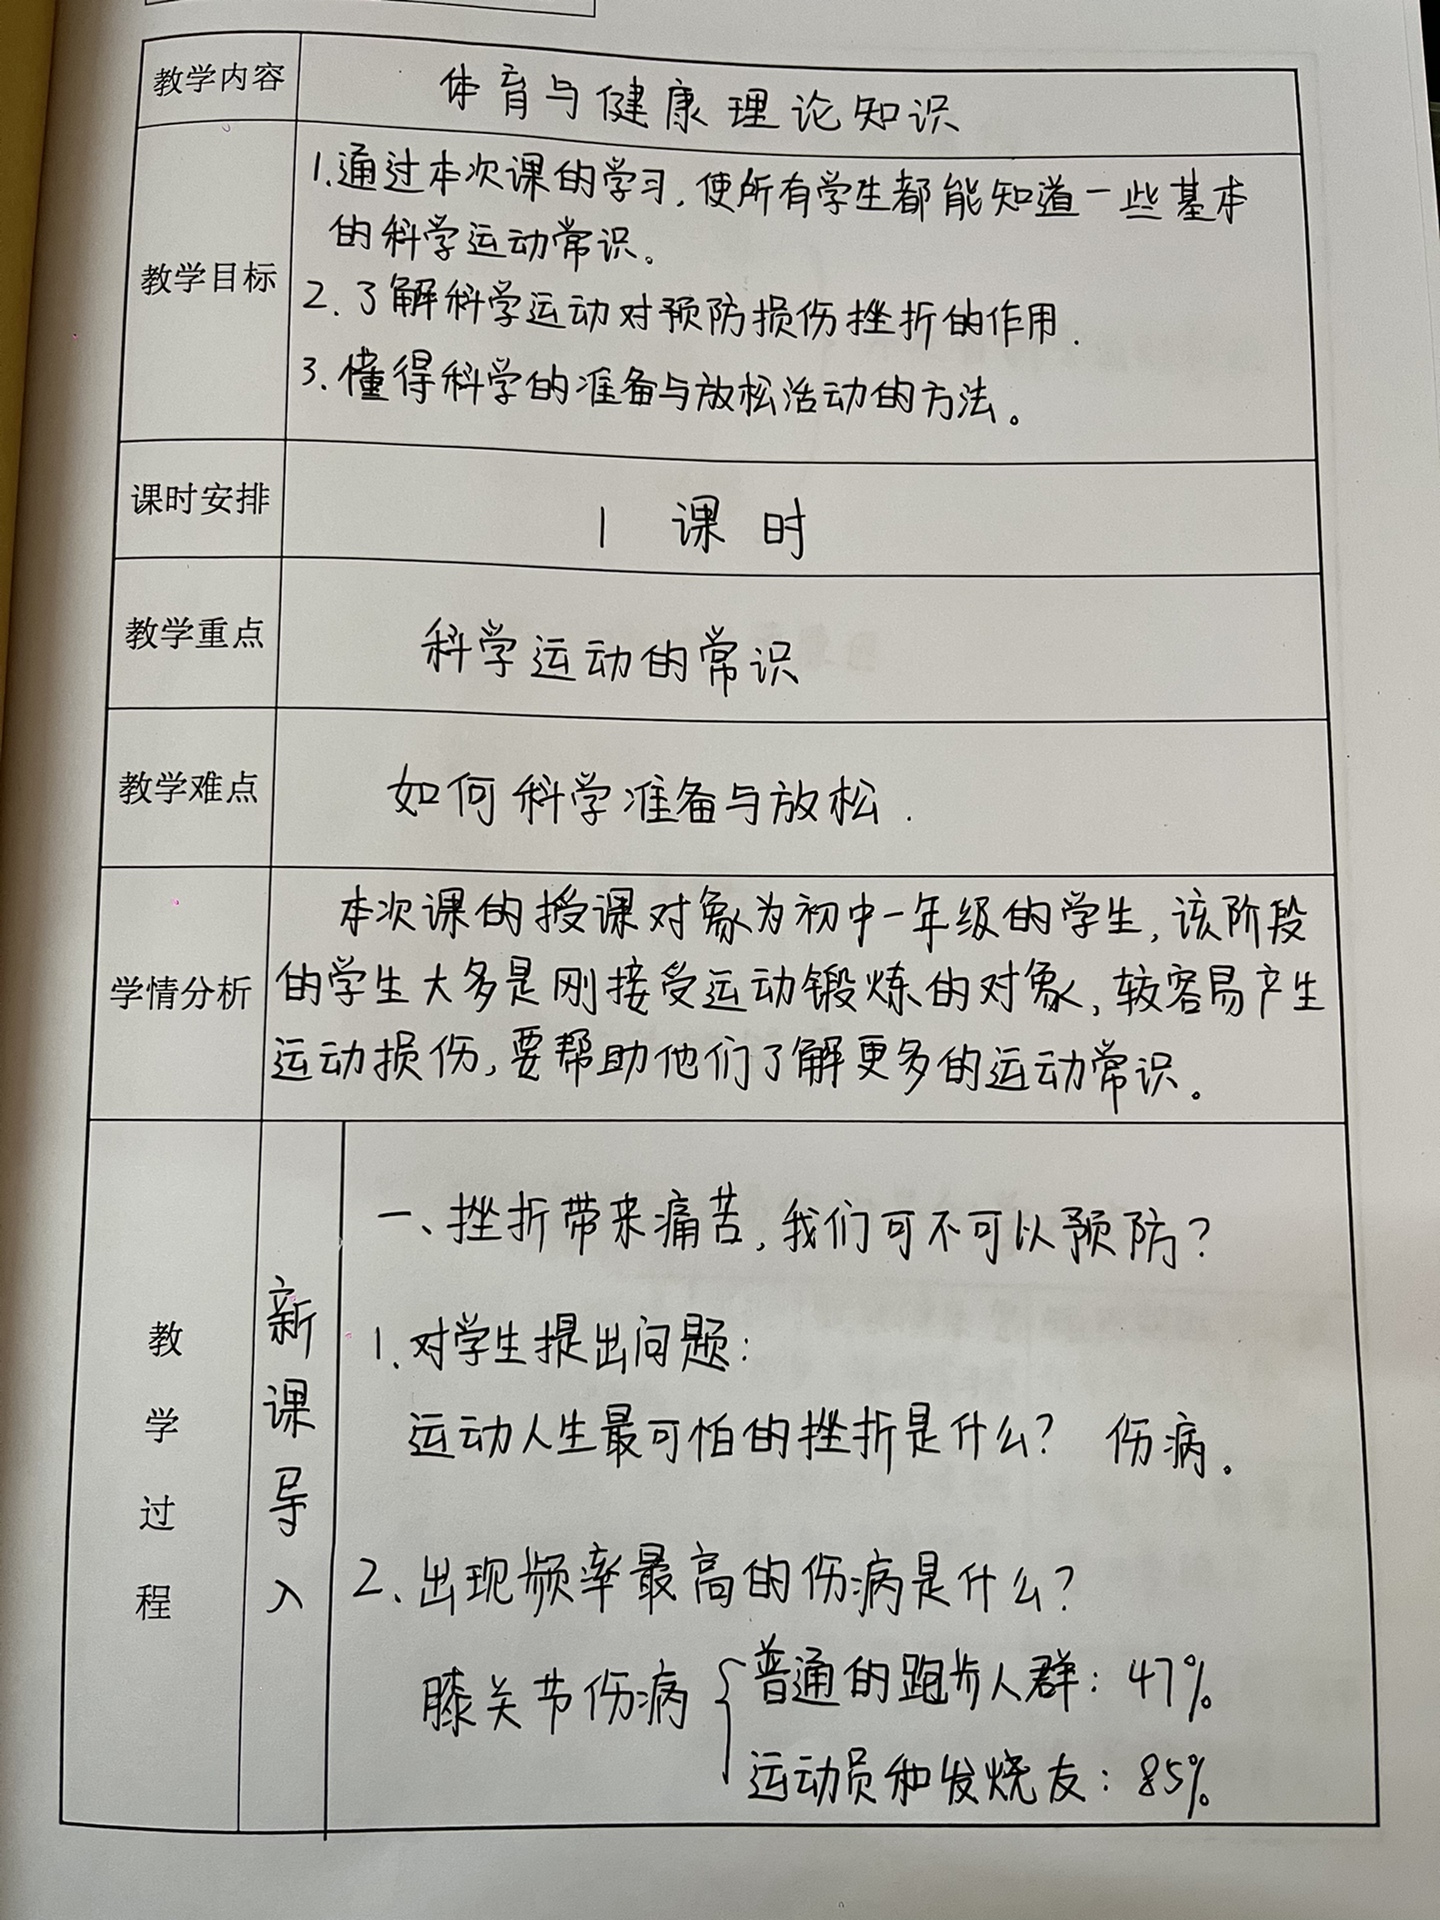 教学内容
体育与健康理论知识
教学目标
1.通过本次课的学习,使所有学生都能知道一些基本
的科学运动常识。
2.了解科学运动对预防损伤挫折的作用.
3.懂得科学的准备与放松活动的方法。
课时安排
1 课时
教学重点
科学运动的常识
教学难点
如何科学准备与放松.
学情分析
本次课的授课对象为初中一年级的学生,该阶段
的学生大多是刚接受运动锻炼的对象,较容易产生
运动损伤,要帮助他们了解更多的运动常识。
教
学
过
程
新
课
导
入
一、挫折带来痛苦,我们可不可以预防?
1.对学生提出问题:
运动人生最可怕的挫折是什么? 伤病。
2.出现频率最高的伤病是什么?
膝关节伤病
普通的跑步人群:47%
运动员和发烧友:85%